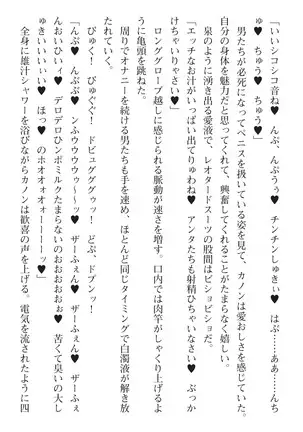 「いいシコシコ音ね♥　んぷ、んぷうぅ♥　チンチンしゅきぃ♥　はぷ……ああ……んち
ゅ♥　ちゅう♥　ちゅう♥」
　男たちが必死になってペニスを扱いている姿を見て、カノンは愛おしさを感じていた。
自分の身体を魅力だと思ってくれて、興奮してくれることがたまらなく嬉しい。
　泉のように湧き出る愛液で、レオタードスーツの股間はビショビショだ。
「エッチなお汁がいっぱい出てりゅわね♥　アンタたちも射精ひちゃいなさい♥　ぶっか
けちゃいりゃさい♥」
　ロンググローブ越しに感じられる脈動が速さを増す。口内では肉竿がしゃくり上げるよ
うに亀頭を跳ねた。
　周りでオナニーを続ける男たちも手を速め、ほとんど同じタイミングで白濁液が解き放
れていく。
　びゅく！　びゅぐぐ！　ドビュググググゥッ！　どぷ、ドプンッ！
「んぷ♥　んぷ♥　ンふウウウウゥ〜〜ッ♥　ザーふぇん♥　ザーふぇん♥　ザーふぇ
んおいひいィ♥　デロデロひンポミルクたまらないのおおおおぉ♥　苦くて臭いの大し
ゅきいいいいぃぃ♥　ほっ♥　のホオオオオォーーーーッ♥」
　全身に雄汁シャワーを浴びながらカノンは歓喜の声を上げる。電気を流されたように四